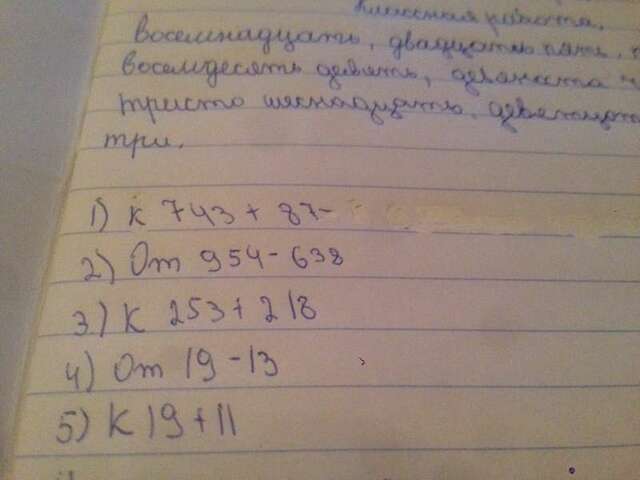 Классная работа.
восемнадцать, двадцать пять,
восемдесять девять, девяноста
тристо шеснадцать,
три.
1) к 743 + 87-
2) От 954 - 638
3) К 253 + 218
4) От 19 - 13
5) К 19 + 11